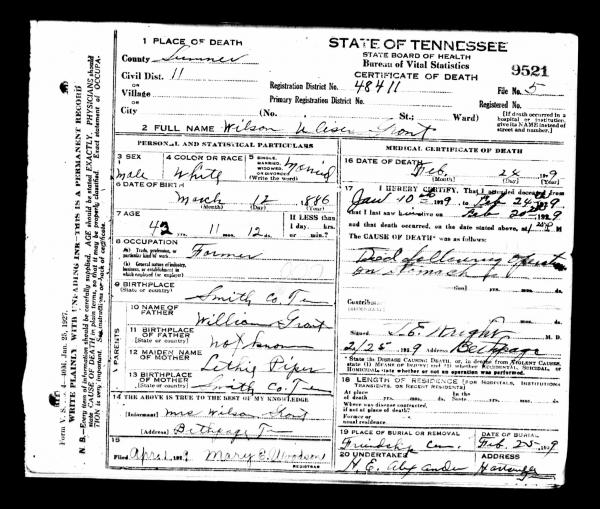 STATE OF TENNESSEE
STATE BOARD OF HEALTH
Bureau of Vital Statistics
CERTIFICATE OF DEATH
9521
1 PLACE OF DEATH
County Sumner
Civil Dist. 11
OR
Village
OR
City (No. St.; Ward)
Registration District No. 48411 File No. 5
Primary Registration District No. Registered No.
[If death occurred in a hospital or institution, give its NAME instead of street and number.]
2 FULL NAME Wilson Grant
PERSONAL AND STATISTICAL PARTICULARS
3 SEX Male
4 COLOR OR RACE White
5 SINGLE, MARRIED, WIDOWED, OR DIVORCED (Write the word) Married
6 DATE OF BIRTH
March 12 1886
(Month) (Day) (Year)
7 AGE
42 yrs. 11 mos. 12 ds.
If LESS than 1 day, hrs. or min.?
8 OCCUPATION
(a) Trade, profession, or particular kind of work Farmer
(b) General nature of industry, business, or establishment in which employed (or employer)
9 BIRTHPLACE
(State or country) Smith Co. Te
PARENTS
10 NAME OF FATHER William Grant
11 BIRTHPLACE OF FATHER
(State or country) not known
12 MAIDEN NAME OF MOTHER Piper
13 BIRTHPLACE OF MOTHER
(State or country) Smith Co. Te
14 THE ABOVE IS TRUE TO THE BEST OF MY KNOWLEDGE
(Informant) Mrs Wilson Grant
(Address) Bethpage Te
15
Filed April 1 Mary E. Woodson
REGISTRAR
MEDICAL CERTIFICATE OF DEATH
16 DATE OF DEATH
Feb. 24 1929
(Month) (Day) (Year)
17 I HEREBY CERTIFY, That I attended deceased from
Jan 10 1929, to Feb 24 1929
that I last saw h alive on Feb 1929
and that death occurred, on the date stated above, at M.
The CAUSE OF DEATH was as follows:
Died following operation
on stomach
(Dur) yrs. mos. ds.
Contributory
yrs. mos. ds.
Signed Wright M. D.
2/25 1929 Address Bethpage
State the DISEASE CAUSING DEATH, or, in deaths from VIOLENT CAUSES state (1) MEANS OF INJURY; and (2) whether ACCIDENTAL, SUICIDAL, or HOMICIDAL; state whether or not an operation was performed.
18 LENGTH OF RESIDENCE (FOR HOSPITALS, INSTITUTIONS, TRANSIENTS, OR RECENT RESIDENTS)
At place of death yrs. mos. ds. In the State yrs. mos. ds.
Where was disease contracted, if not at place of death?
Former or usual residence
19 PLACE OF BURIAL OR REMOVAL
Friendship Cem.
DATE OF BURIAL
Feb. 25 1929
20 UNDERTAKER
H. E. Alexander
ADDRESS
Form V. S. No. 4—40M, Jan. 25, 1927.
WRITE PLAINLY WITH UNFADING INK—THIS IS A PERMANENT RECORD
N. B.—Every item of information should be carefully supplied. AGE should be stated EXACTLY. PHYSICIANS should
state CAUSE OF DEATH in plain terms, so that it may be properly classified. Exact statement of OCCUPA-
TION is very important. See instructions on back of certificate.